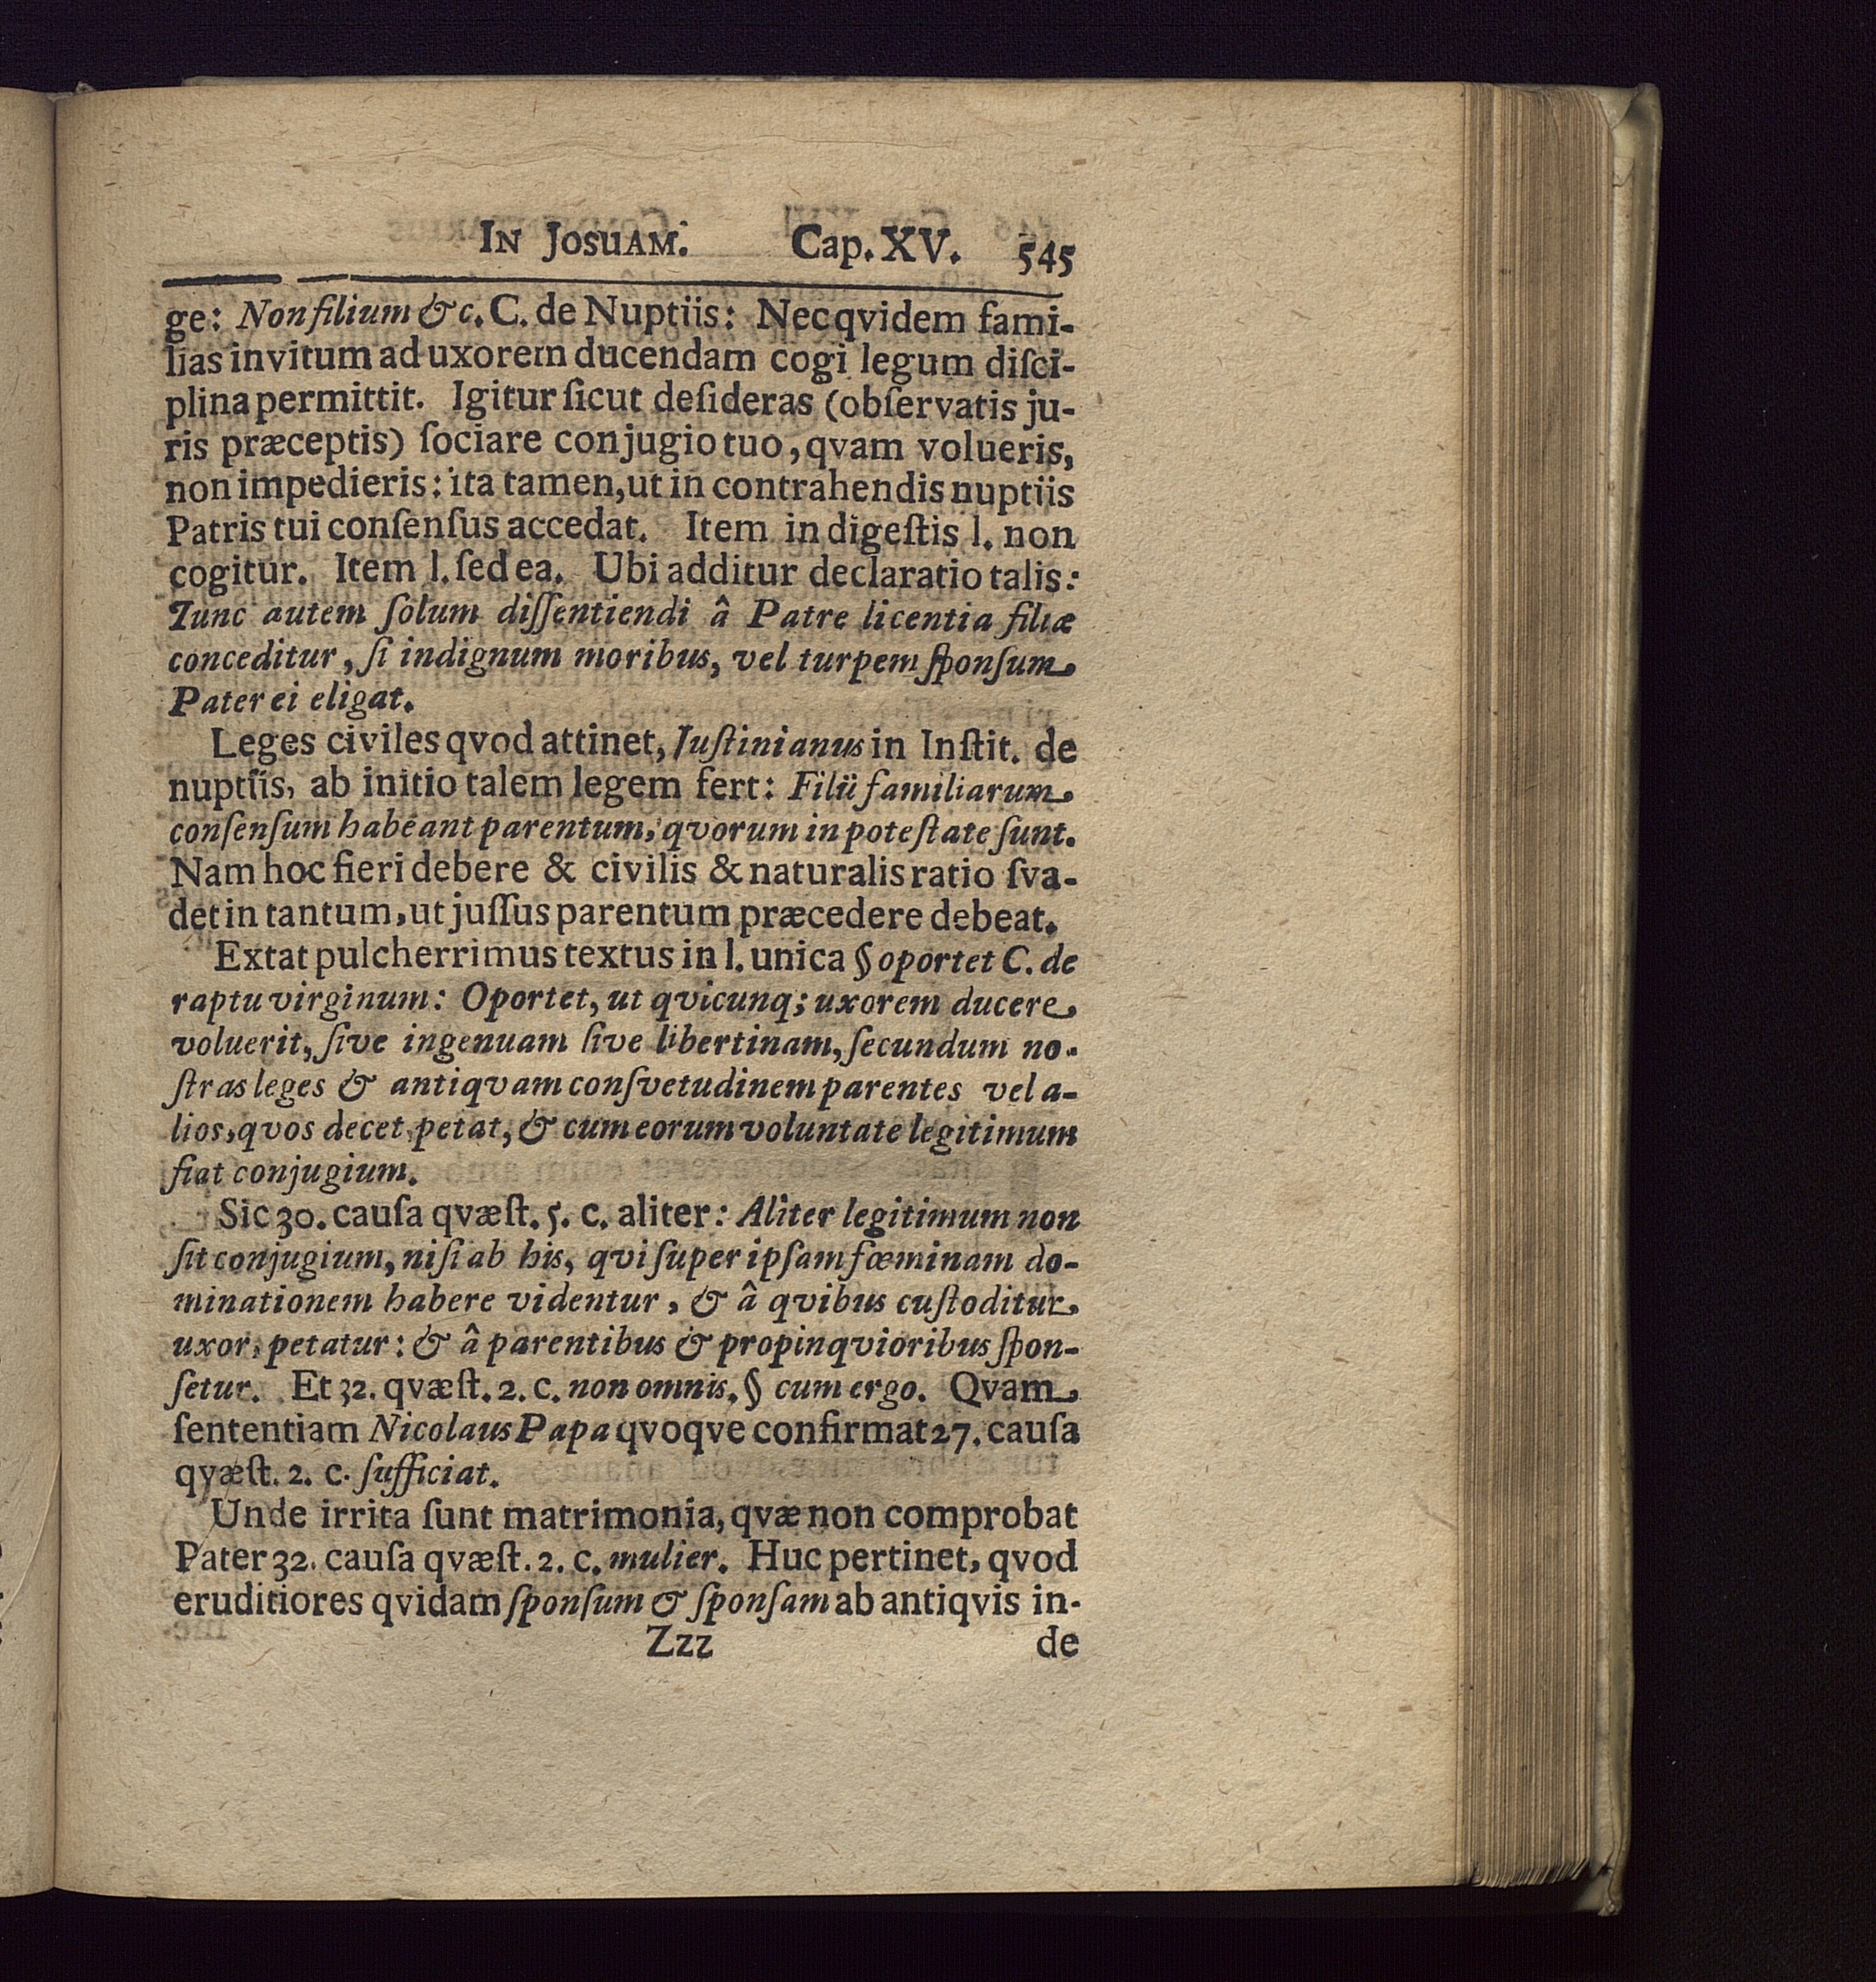 IN JOSUAM. Cap. XV. 545
ge: Non filium & c. C. de Nuptiis: Nec qvidem fami-
lias invitum ad uxorem ducendam cogi legum diſci-
plina permittit. Igitur ſicut deſideras (obſervatis ju-
ris præceptis) ſociare conjugio tuo, qvam volueris,
non impedieris: ita tamen, ut in contrahendis nuptiis
Patris tui conſenſus accedat. Item in digeſtis l. non
cogitur. Item l. ſed ea. Ubi additur declaratio talis:
Tunc autem ſolum diſſentiendi â Patre licentia filiæ
conceditur, ſi indignum moribus, vel turpem ſponſum
Pater ei eligat.
Leges civiles qvod attinet, Juſtinianus in Inſtit. de
nuptiis, ab initio talem legem fert: Filii familiarum
conſenſum habeant parentum, qvorum in poteſtate ſunt.
Nam hoc fieri debere & civilis & naturalis ratio ſva-
det in tantum, ut juſſus parentum præcedere debeat.
Extat pulcherrimus textus in l. unica § oportet C. de
raptu virginum: Oportet, ut qvicunq; uxorem ducere
voluerit, ſive ingenuam ſive libertinam, ſecundum no-
ſtras leges & antiqvam conſvetudinem parentes vel a-
lios, qvos decet, petat, & cum eorum voluntate legitimum
fiat conjugium.
Sic 30. cauſa qvæſt. 5. c. aliter: Aliter legitimum non
ſit conjugium, niſi ab his, qvi ſuper ipſam fœminam do-
minationem habere videntur, & â qvibus cuſtoditur
uxor, petatur: & â parentibus & propinqvioribus ſpon-
ſetur. Et 32. qvæſt. 2. c. non omnis. § cum ergo. Qvam
ſententiam Nicolaus Papa qvoqve confirmat 27. cauſa
qvæſt. 2. c. ſufficiat.
Unde irrita ſunt matrimonia, qvæ non comprobat
Pater 32. cauſa qvæſt. 2. c. mulier. Huc pertinet, qvod
eruditiores qvidam ſponſum & ſponſam ab antiqvis in-
Zzz de